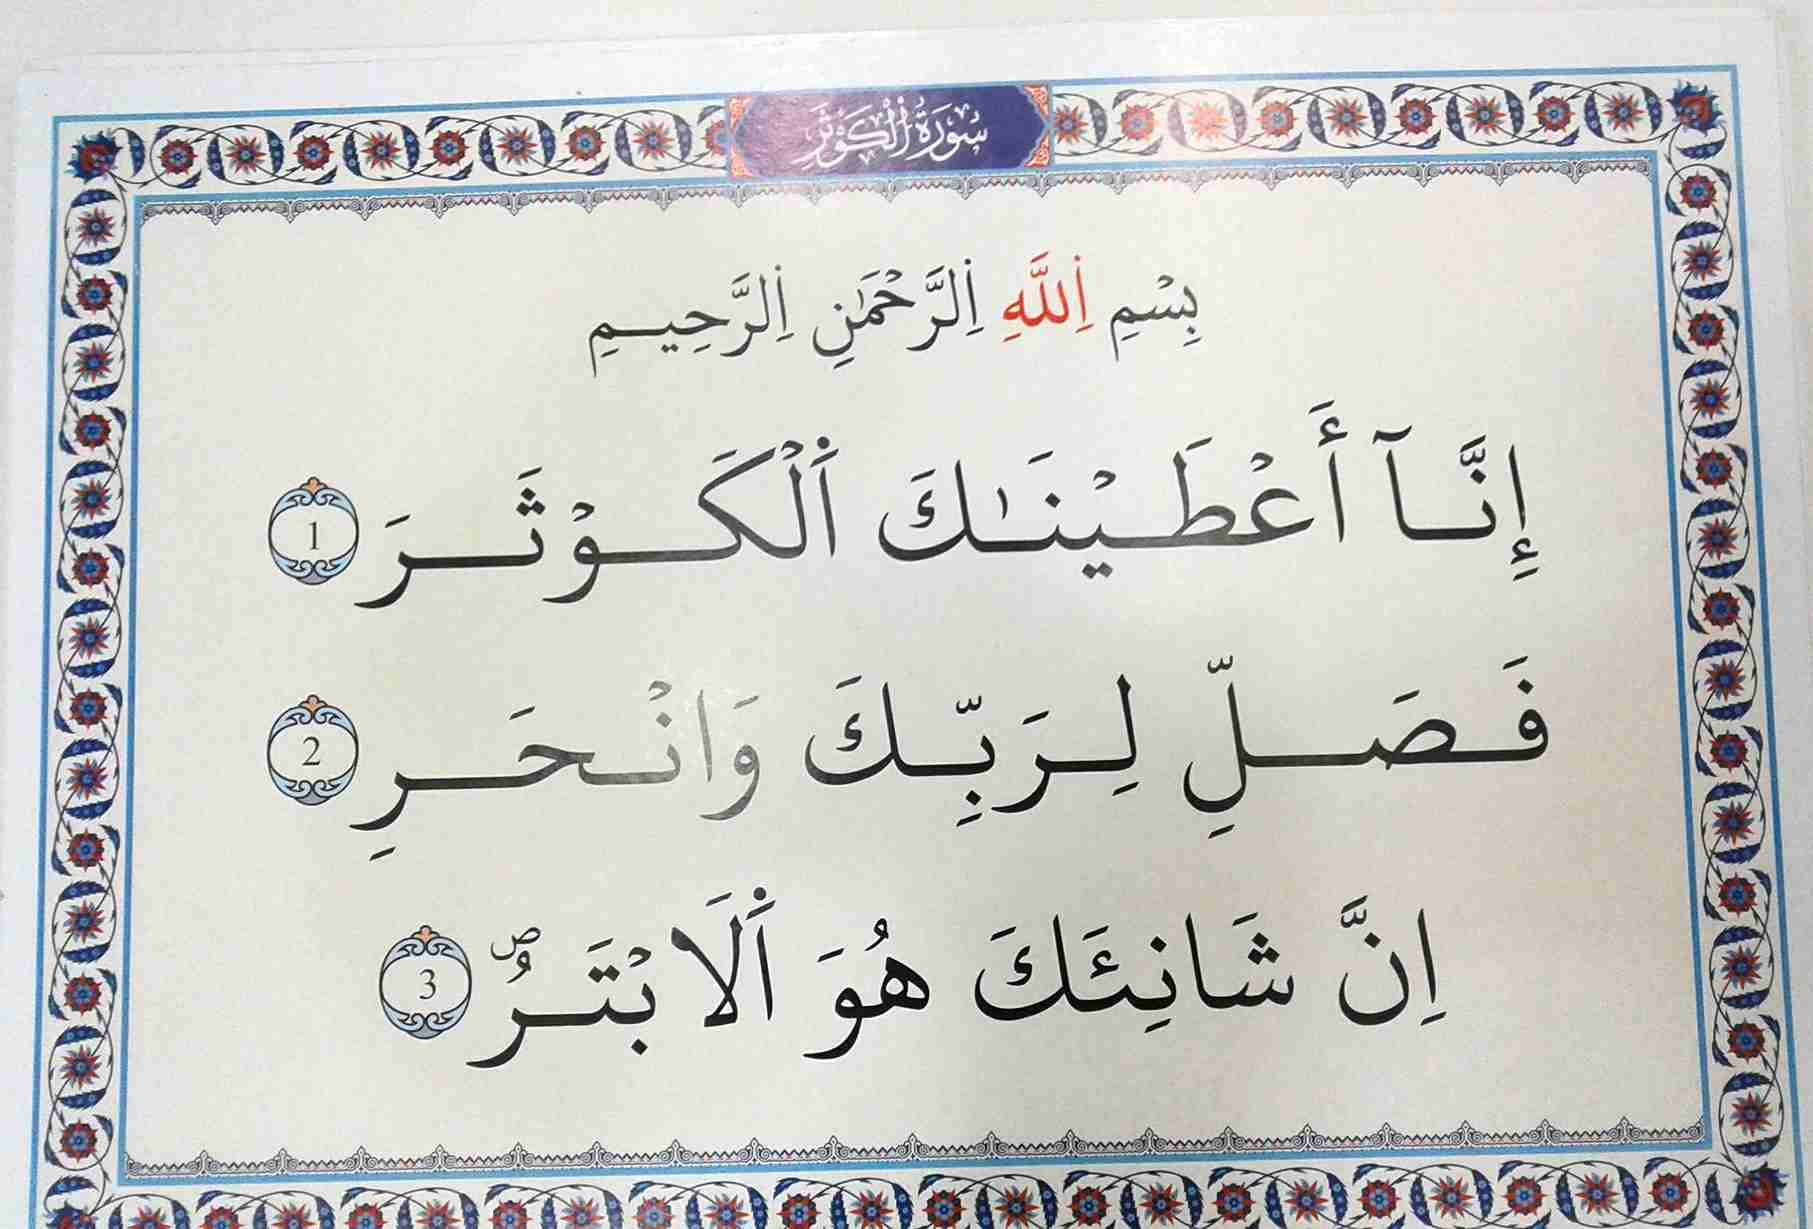 سُورَةُ الْكَوْثَرِ
بِسْمِ اللَّهِ الرَّحْمَٰنِ الرَّحِيمِ
إِنَّآ أَعْطَيْنَٰكَ اَ۬لْكَوْثَرَ 1
فَصَلِّ لِرَبِّكَ وَانْحَرِ 2
اِنَّ شَانِئَكَ هُوَ اَ۬لَابْتَرُۖ 3